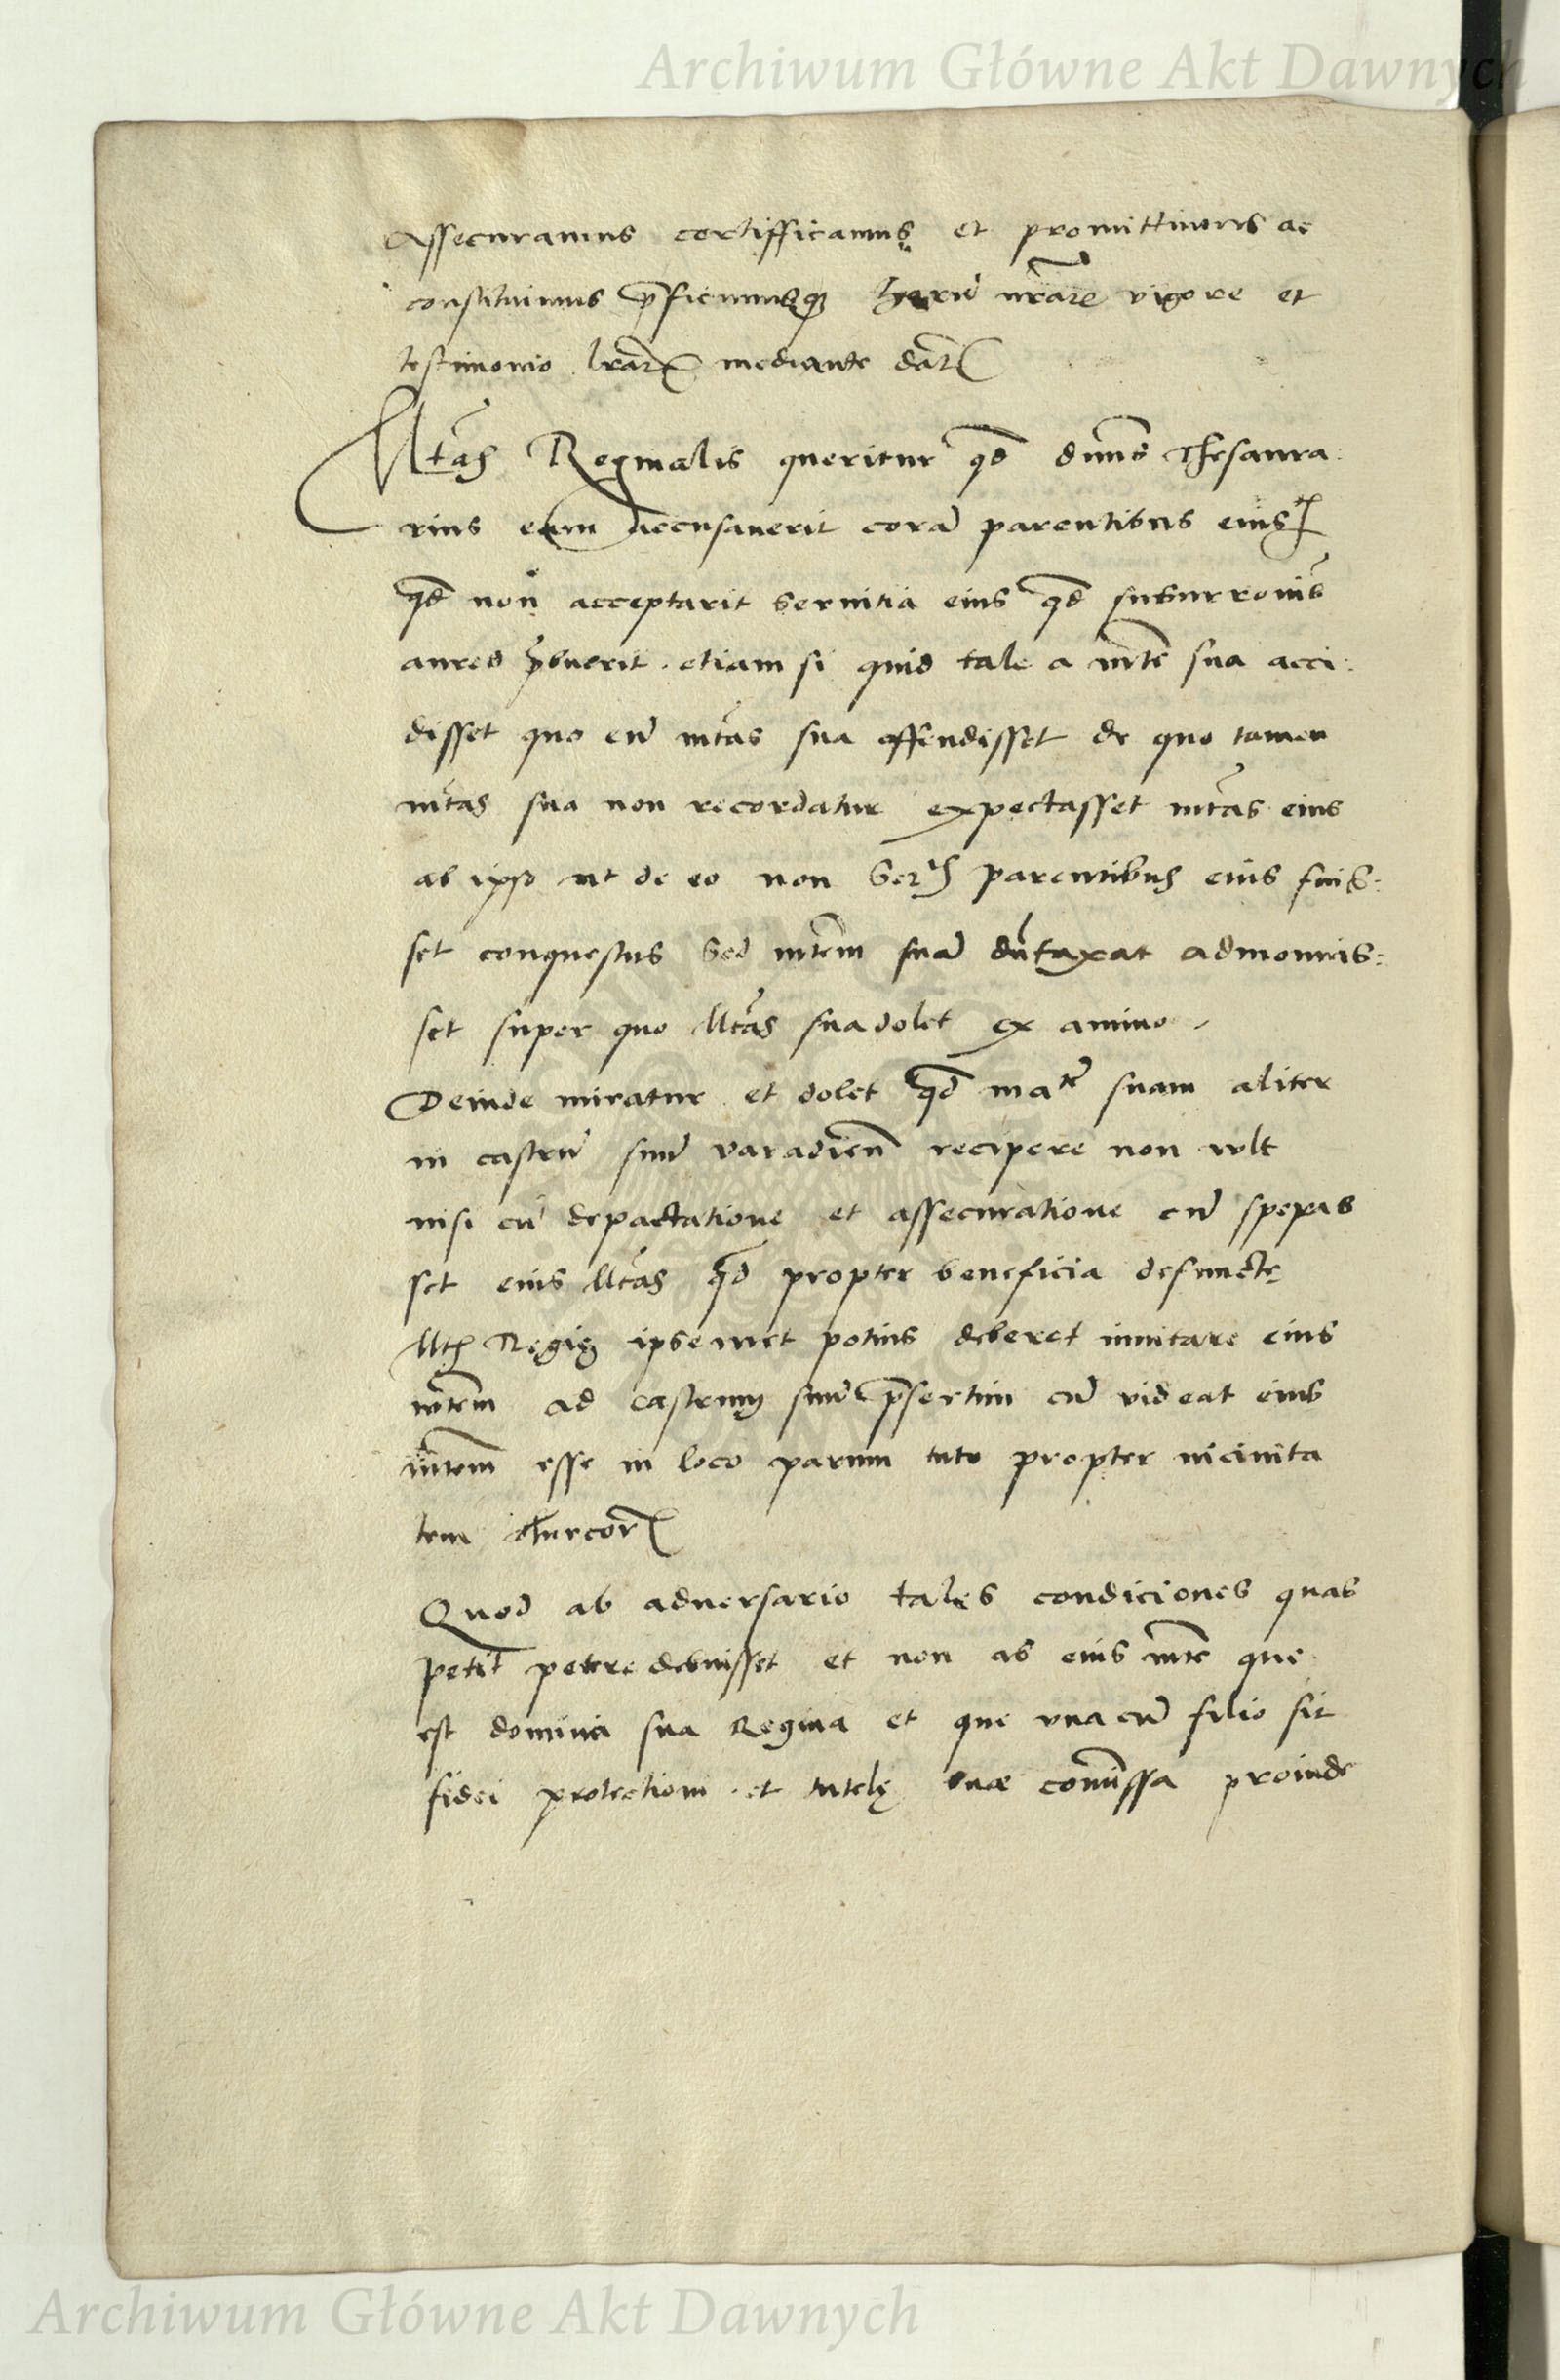 Archiwum Główne Akt Dawnych
Assecuramus certifficamus et promittimus ac
constituimus p̄ficimusq̨ harū nr̄arz vigore et
testimonio lrarz mediante datz
Mtas Reginalis queritur qd dnus Thesaura:
rius eam accusaverit corā parentibus eius
qd non acceptarit servitia eius qd susurronis
aures p̄buerit. etiam si quid tale a mte sua acci:
disset quo eū mtas sua offendisset de quo tamen
mtas sua non recordatur expectasset mtas eius
ab ipso ut de eo non Ser parentibus eius fuis:
set conquestus sed mtem suā duntaxat admonuis:
set super quo Mtas sua dolet ex animo
Deinde miratur et dolet qd mate suam aliter
in castrū suū varadien recipere non vult
nisi cū depactatione et assecuratione cū speras
set eius Mtas qd propter beneficia defuncte
Mtis Regis ipsemet potius deberet invitare eius
mtem ad castrum suū p̄sertim cū videat eius
mtem esse in loco parum tuto propter vicinita
tem Thurcorz
Quod ab adversario tales condiciones quas
petit petere debuisset et non ab eius mte que
est domina sua Regina et que una cū filio sit
fidei protectioni et tutelę suæ comissa proinde
Archiwum Główne Akt Dawnych